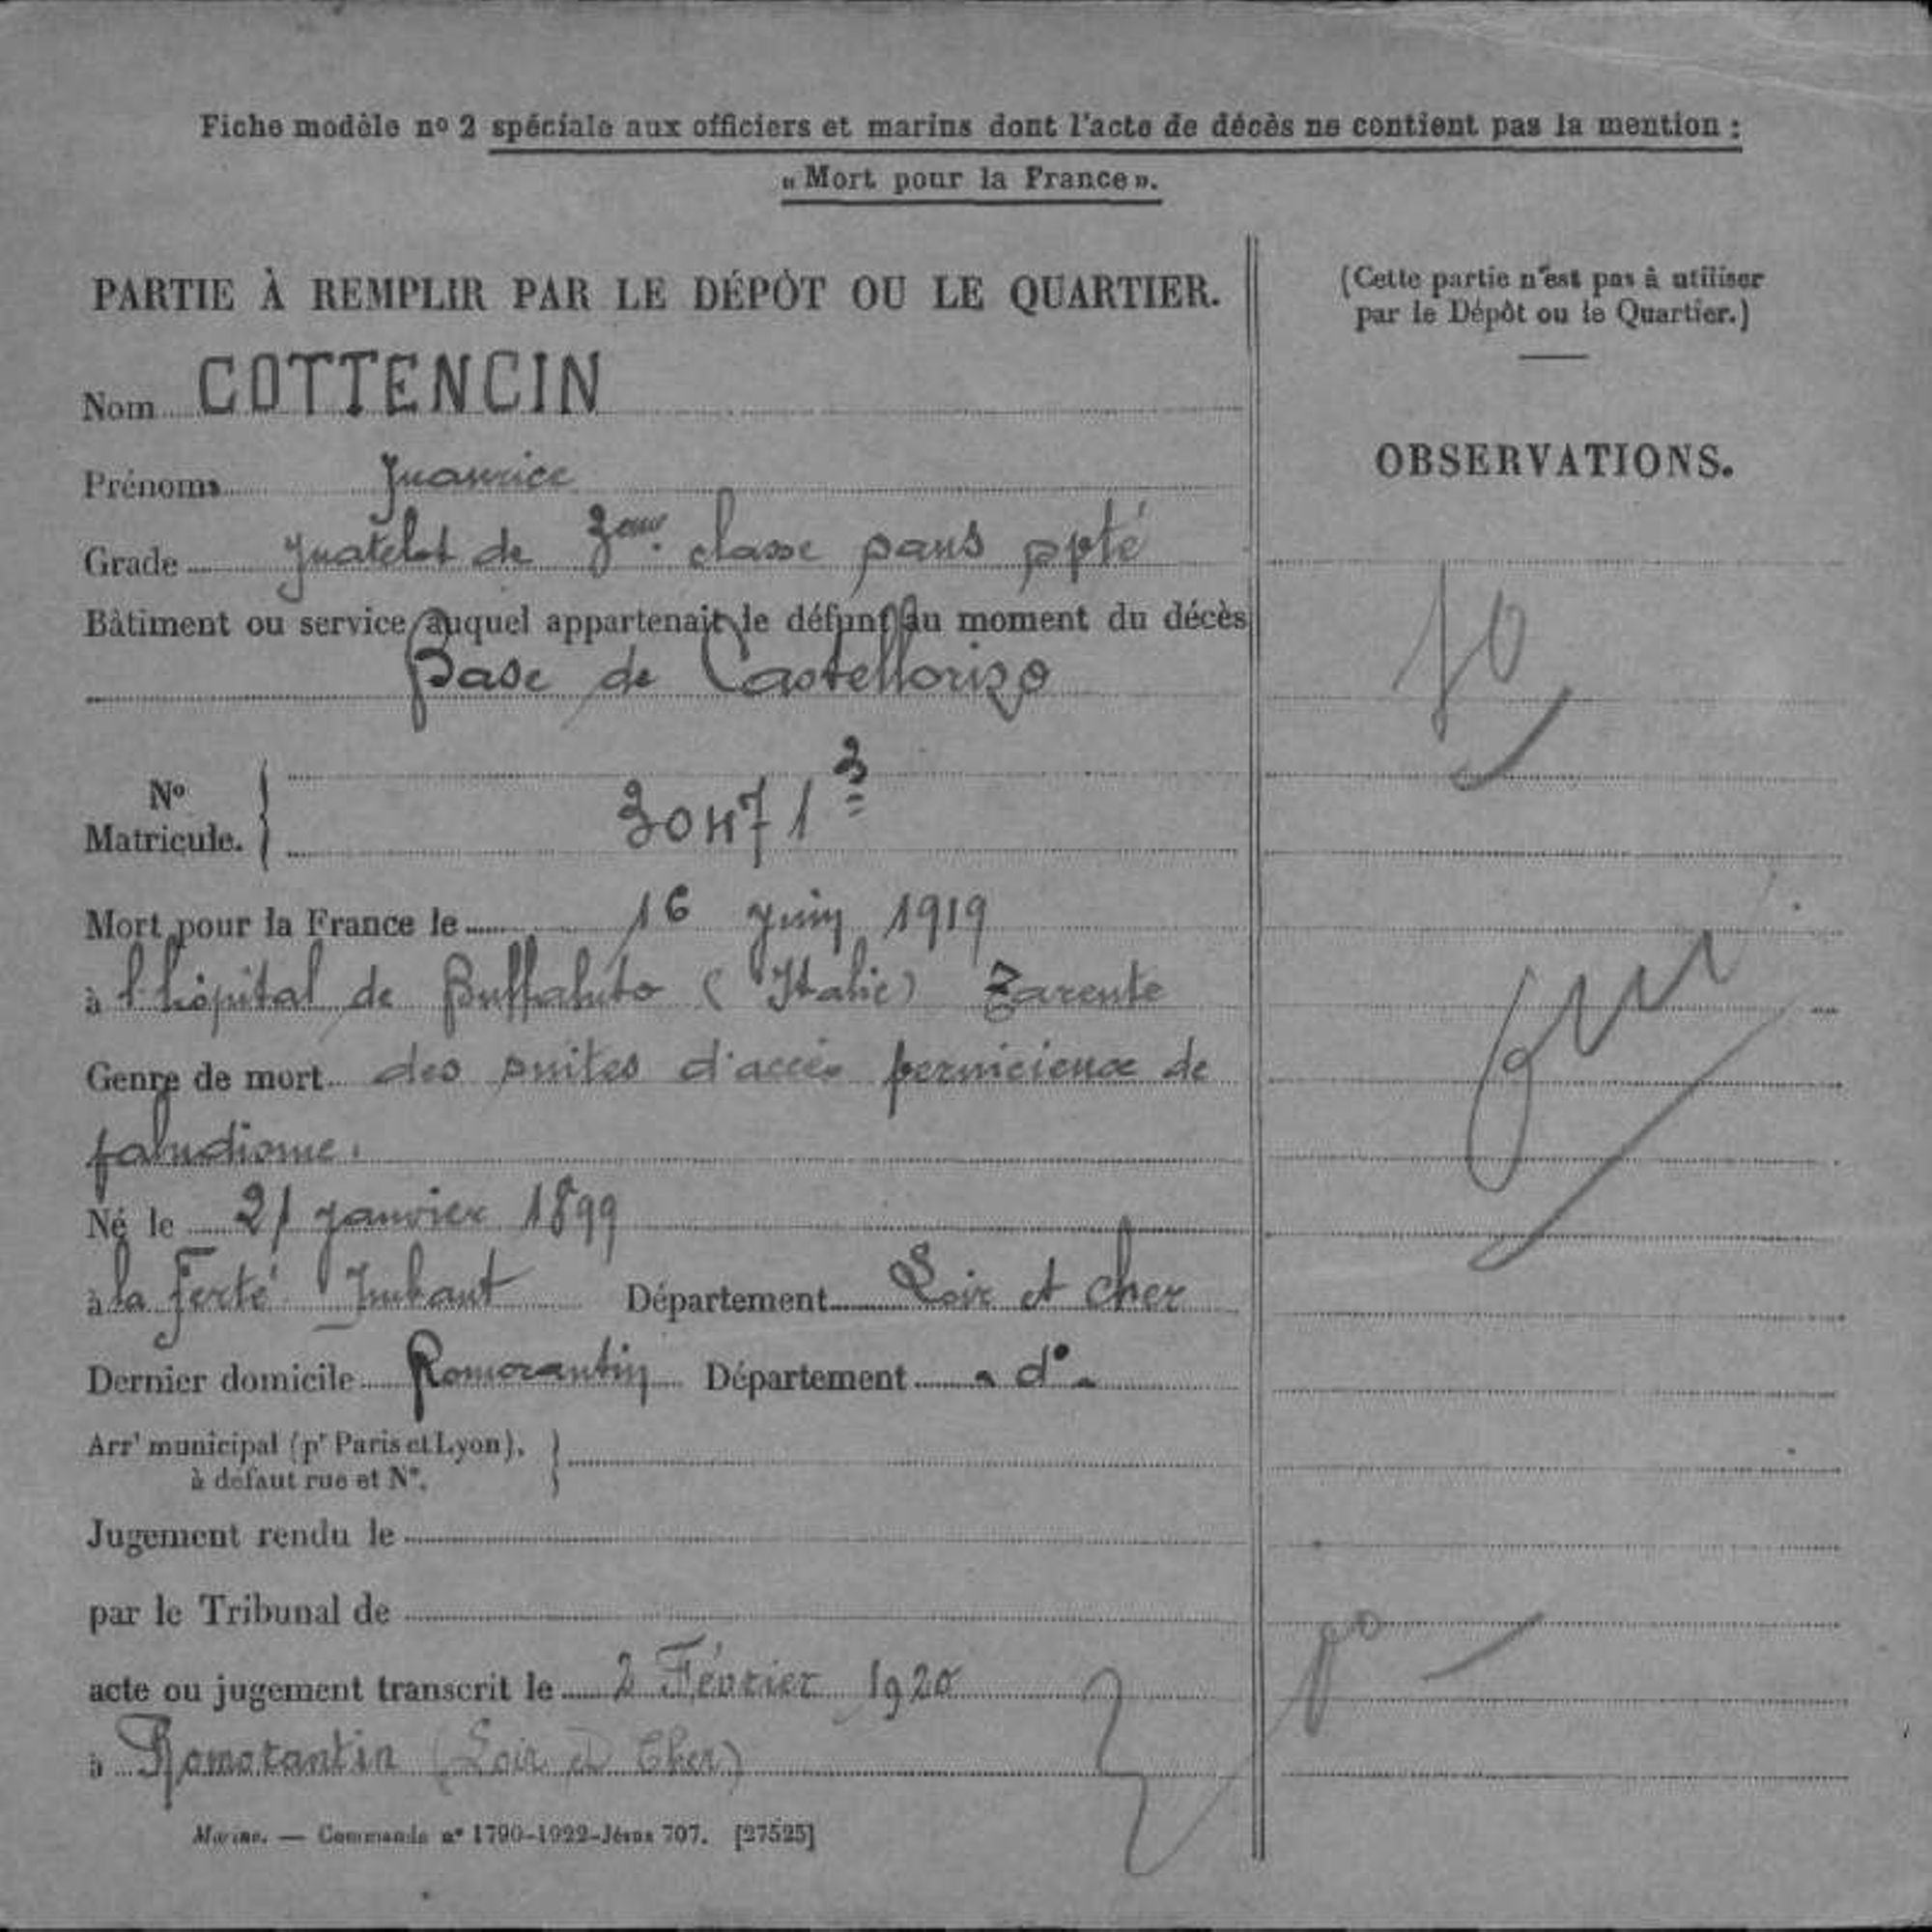 Fiche modèle nº 2 spéciale aux officiers et marins dont l'acte de décès ne contient pas la mention :
« Mort pour la France ».
PARTIE À REMPLIR PAR LE DÉPÔT OU LE QUARTIER.
(Cette partie n'est pas à utiliser
par le Dépôt ou le Quartier.)
Nom COTTENCIN
OBSERVATIONS.
Prénoms Maurice
Grade Matelot de 3eme classe sans spté
Bâtiment ou service auquel appartenait le défunt au moment du décès
Base de Castellorizo
Nº
Matricule.
30471 3
Mort pour la France le 16 juin 1919
à l'hôpital de Buffaluto (Italie) Tarente
Genre de mort des suites d'accès pernicieux de
paludisme.
Né le 21 janvier 1899
à la Ferté Imbaut Département Loir et Cher
Dernier domicile Romorantin Département - dº -
Arrt municipal (pr Paris et Lyon),
à défaut rue et Nº.
Jugement rendu le
par le Tribunal de
acte ou jugement transcrit le 2 Février 1920
à Romorantin (Loir et Cher)
Marine. — Commande nº 1790-1922-Jésus 707. [27525]